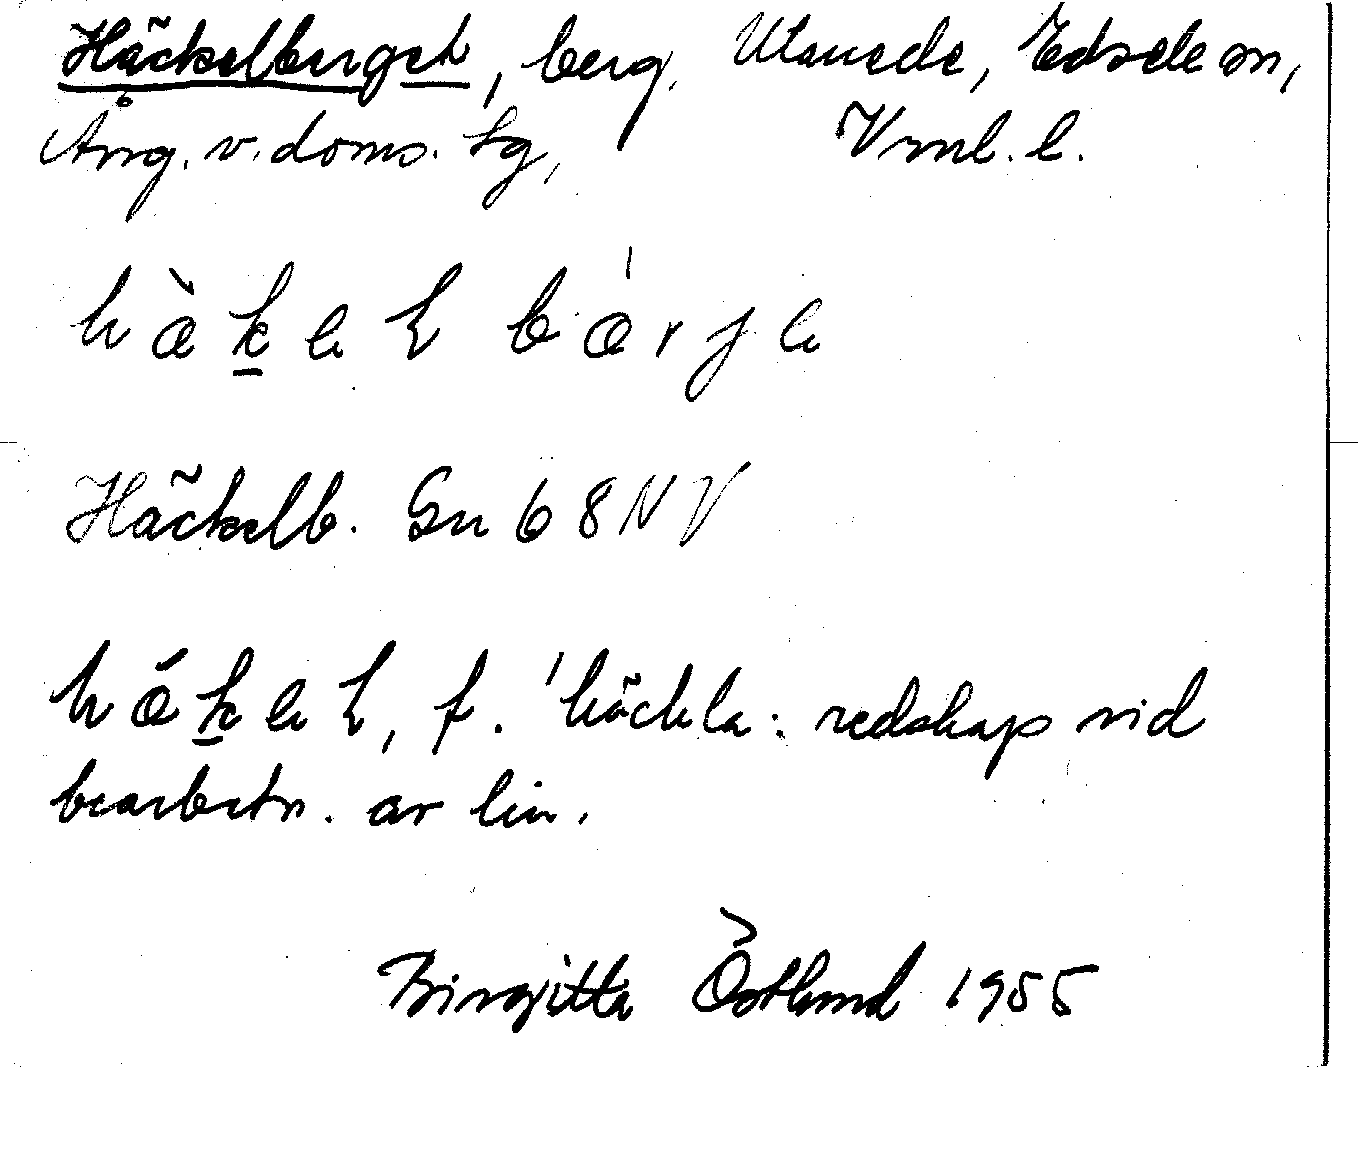 Häckelberget, berg, Utanede, Edsele sn,
Ång. v. doms. tg, Vrnl. l.
hæ̀k̲eł bærje
Häckelb. Gn 6 8 NV
hǽk̲eł, f. 'häckla: redskap vid
bearbetn. av lin.
Birgitta Östlund 1955